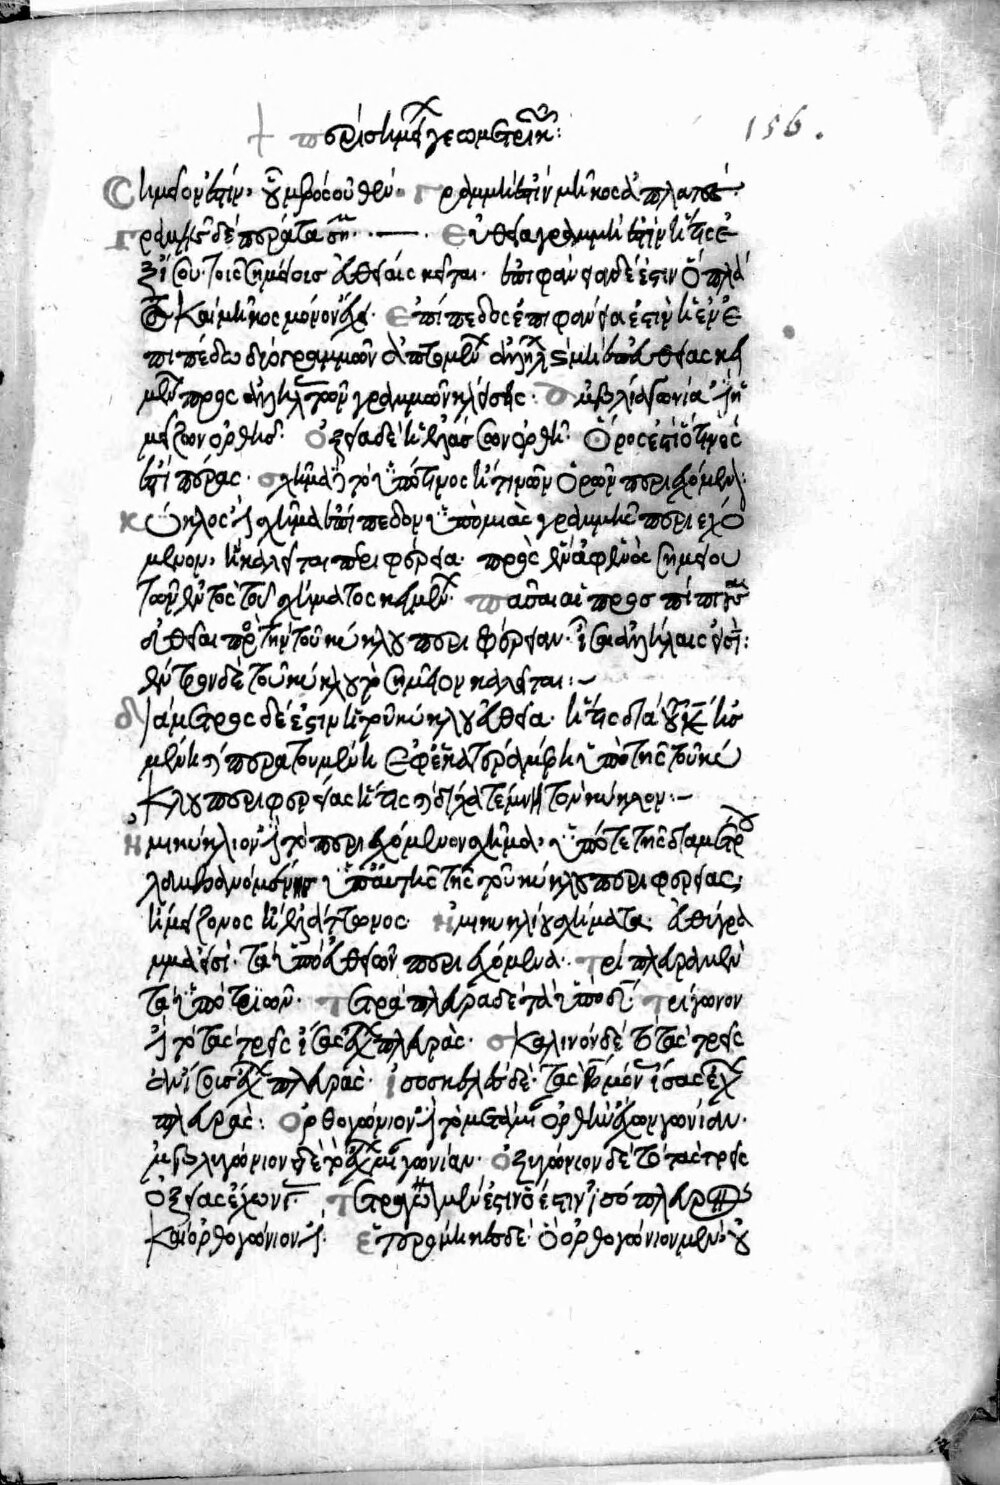 † περὶ σημεί γεωμετρικ :
156.
Σημεῖον ἐστίν, οὗ μέρος οὐθέν· Γραμμὴ ἐστὶν μῆκος ἀπλατές
Γραμμῆς δὲ πέρατα ση. Εὐθεῖα γραμμὴ ἐστὶν ἥτις ἐ
ξίσου τοῖς σημείοις εὐθείαις κεῖται· ἐπιφάνεια δέ ἐστιν ὃ πλά
τος καὶ μῆκος μόνον ἔχει· Ἐπίπεδος ἐπιφάνεια ἐστὶν ἡ ἐν ἐ
πιπέδω δύο γραμμῶν ἁπτομεν ἀλλήλ μὴ ἐπ εὐθείας κει
μεν πρὸς ἀλλήλ τῶν γραμμῶν κλίσις· ἀμβλεῖα γωνία ἡ
μείζων ὀρθῆς· Ὀξεῖα δὲ ἡ ἐλάσσων ὀρθῆς· Ὅρος ἐστὶ ὅ τινος
ἐστὶ πέρας· σχῆμα τὸ ὑπό τινος ἤ τινων ὅρων περιεχόμεν:
κύκλος σχῆμα ἐπίπεδον ὑπὸ μιᾶς γραμμῆς περιεχό
μενον, ἣ καλεῖται περιφέρεια· πρὸς ἣν ἀφ ἑνὸς σημείου
τῶν ἐντὸς τοῦ σχήματος κειμεν· πᾶσαι αἱ προσπίπτουσαι
εὐθεῖαι πρὸς τὴν τοῦ κύκλου περιφέρειαν· ἴσαι ἀλλήλαις εἰσὶ:
κέντρον δὲ τοῦ κύκλου τὸ σημεῖον καλεῖται:—
διάμετρος δέ ἐστιν ἡ τοῦ κύκλου εὐθεῖα· ἥτις διὰ τοῦ κ ἠγ
μένη περατουμένη ἐφ ἑκάτερα μέρη ὑπὸ τῆς τοῦ κύ
κλου περιφερείας ἥτις δίχα τέμνει τὸν κύκλον:—
ἡμικύκλιον τὸ περιεχόμενον σχῆμα, ὑπό τε τῆς διαμέτρου
λαμβανομένης ὑπ αὐτῆς τῆς τοῦ κύκλου περιφερείας;
ἢ μείζονος ἢ ἐλάττονος· ἡμικυκλίου σχήματα· εὐθύγρα
μμα εἰσὶ· τὰ ὑπὸ εὐθειῶν περιεχόμενα· τρίπλευρα μὲν
τὰ ὑπὸ τριῶν· τετράπλευρα δὲ τὰ ὑπὸ δ· τρίγωνον
τὸ τὰς τρεῖς ἴσας ἔχ πλευράς· σκαληνὸν δὲ τὸ τὰς τρεῖς
ἀνίσους ἔχ πλευράς· ἰσοσκελὲς δὲ τὰς β μόν ἴσας ἔχ
πλευράς: Ὀρθογώνιον τὸ μετὰ μι ὀρθὴν ἔχων γωνίαν·
ἀμβλυγώνιον δὲ τὸ ἔχ μι γωνίαν· ὀξυγώνιον δὲ τὸ τὰς τρεῖς
ὀξείας ἔχων· τετράγω μέν ἐστιν ὅ ἐστιν ἰσόπλευρ
καὶ ὀρθογώνιον· ἑτερόμηκες δὲ· ὃ ὀρθογώνιον μὲν, οὐ